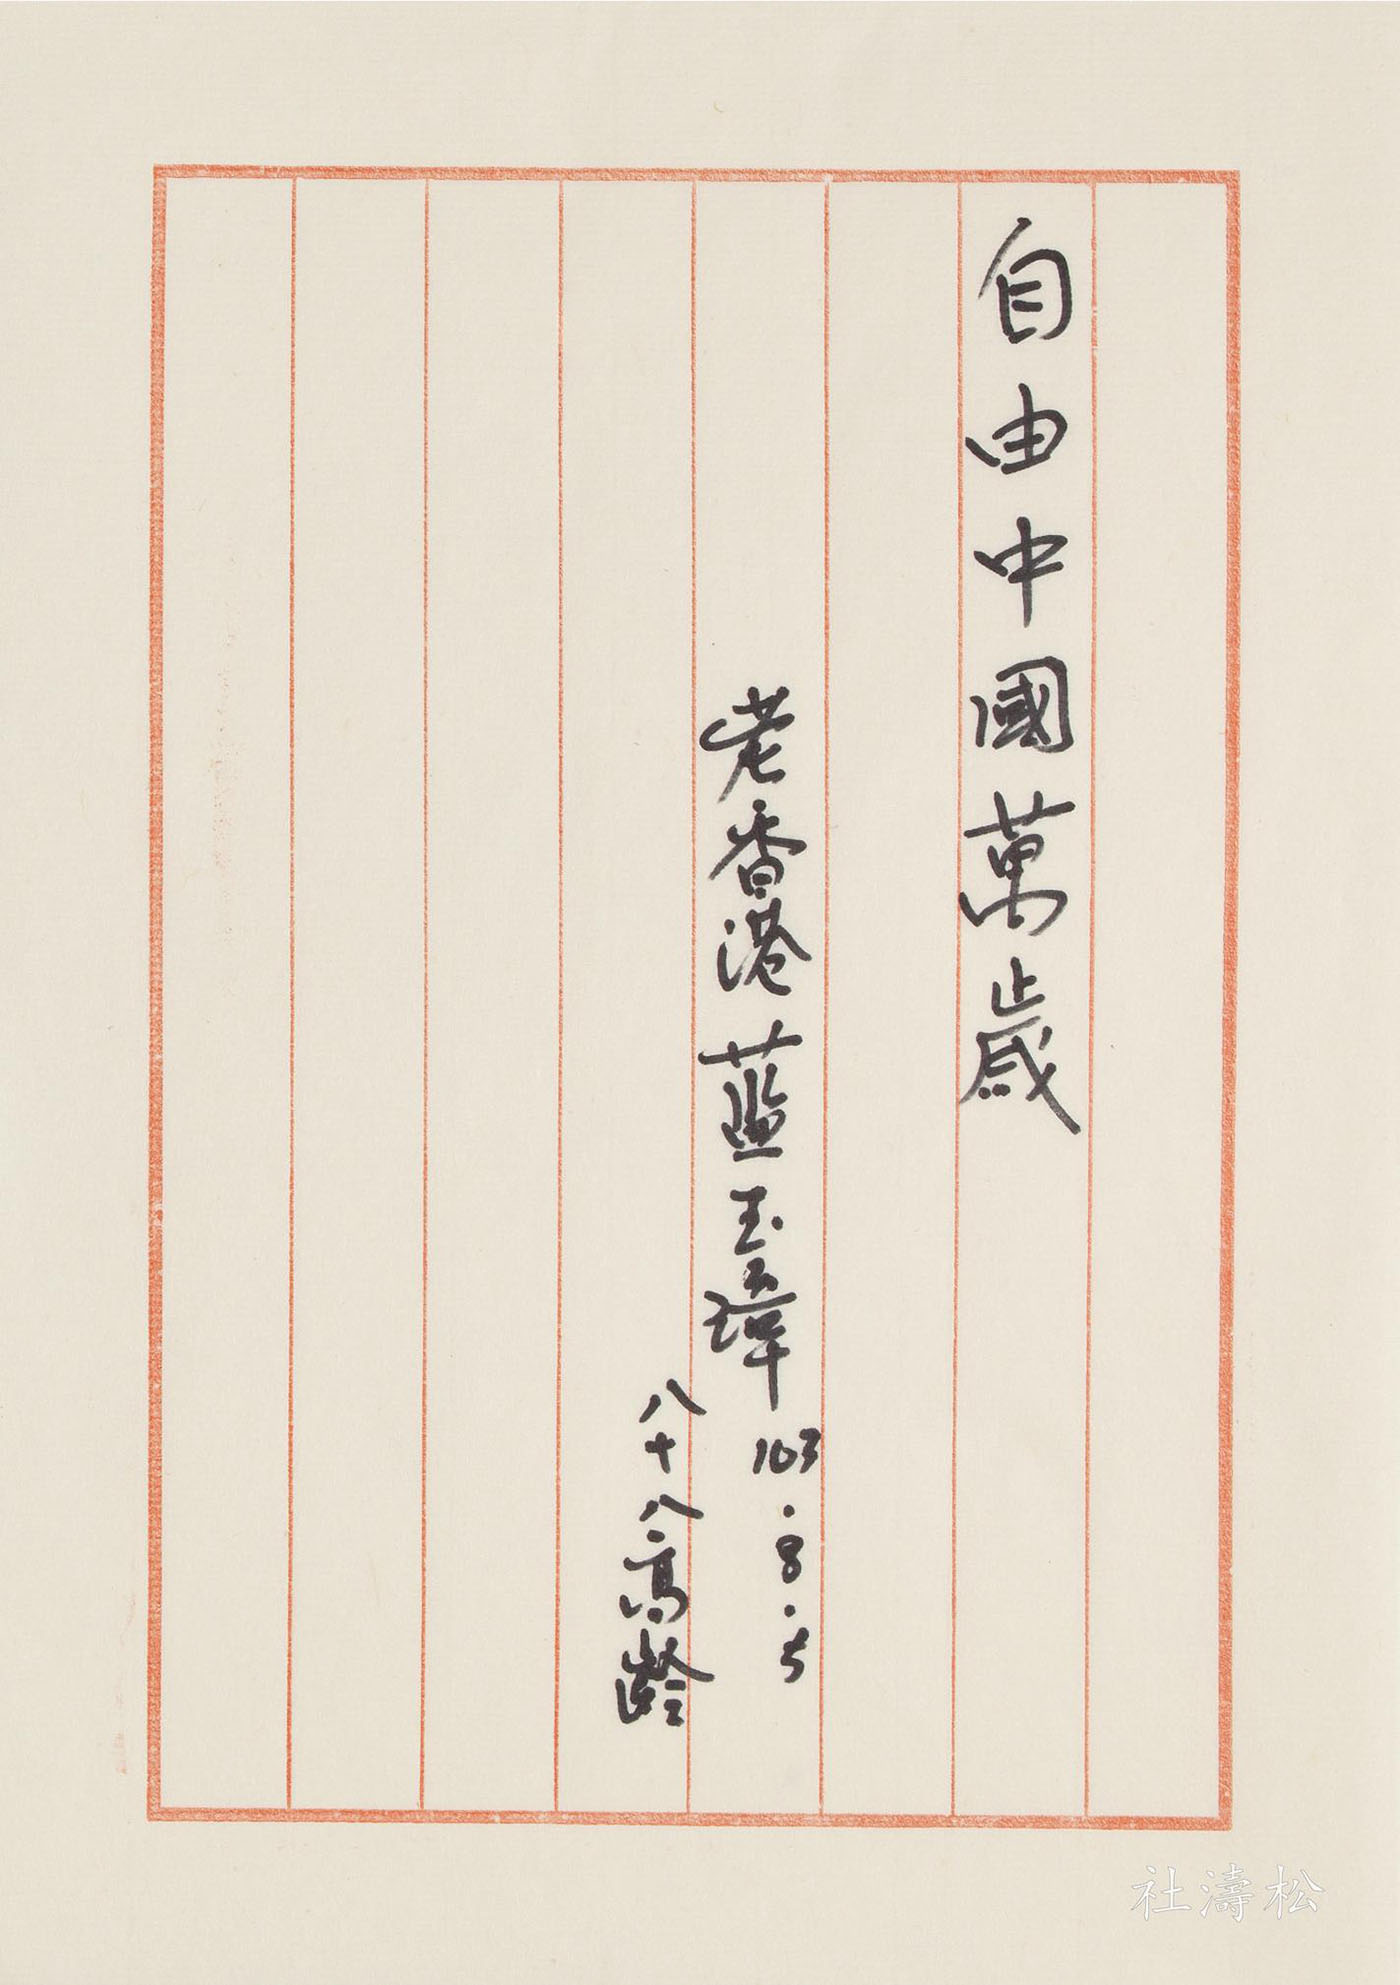 自由中國萬歲
老香港藍玉璋
103.8.5
八十八高齡
松濤社